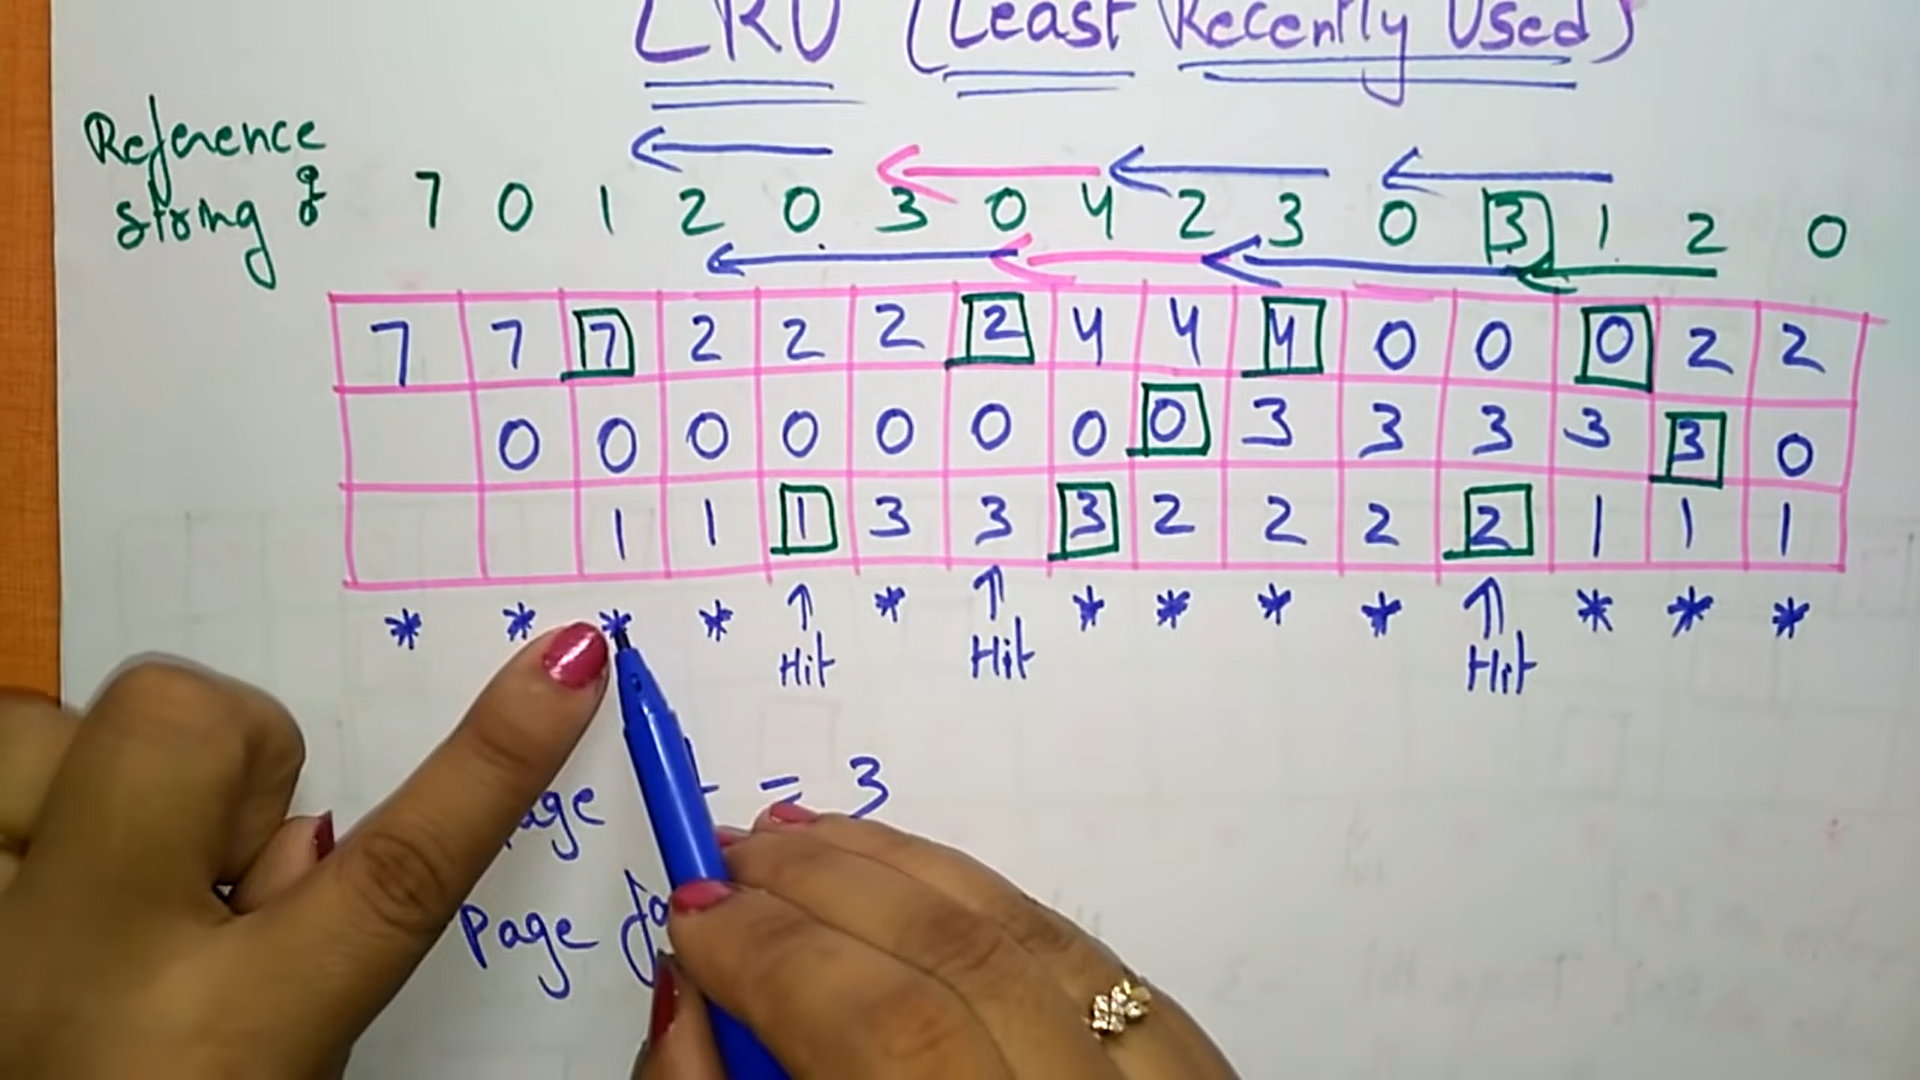 LRU (Least Recently Used)
Reference
string of
7 0 1 2 0 3 0 4 2 3 0 3 1 2 0
7 7 7 2 2 2 2 4 4 4 0 0 0 2 2
0 0 0 0 0 0 0 0 3 3 3 3 3 0
1 1 1 3 3 3 2 2 2 2 1 1 1
* * * * * * * * * * * *
Hit Hit Hit
= 3
Page